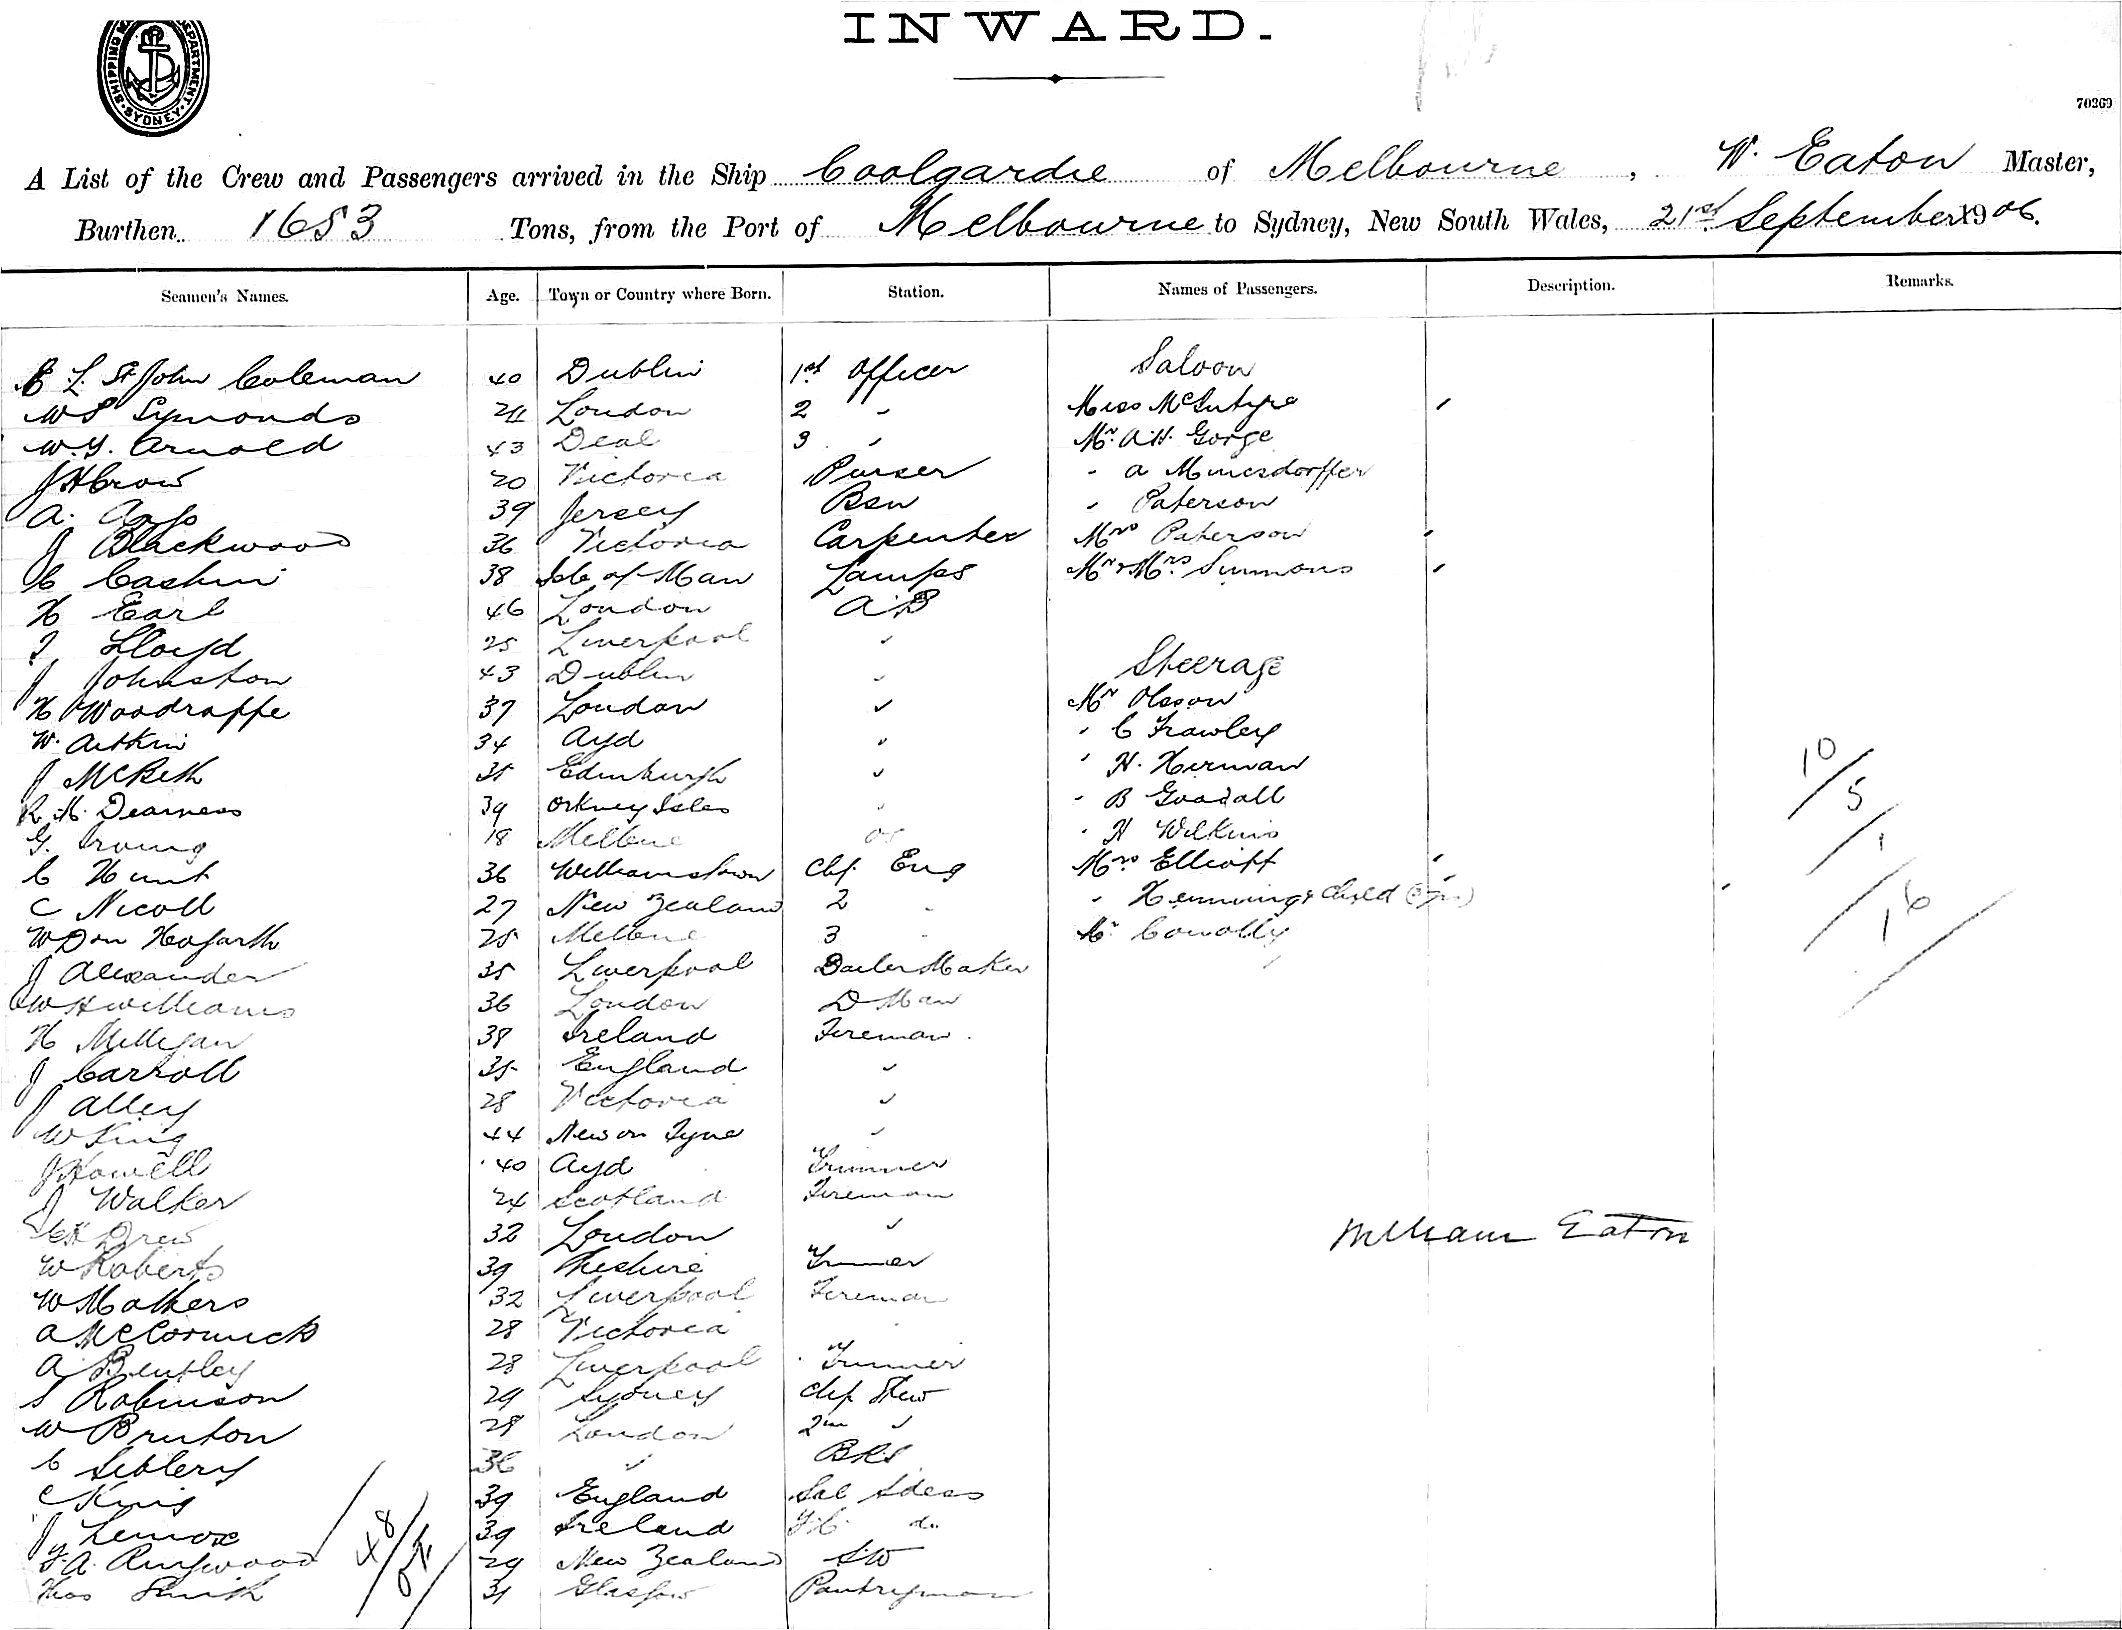 INWARD.
SHIPPING DEPARTMENT. SYDNEY.
70269
A List of the Crew and Passengers arrived in the Ship Coolgardie of Melbourne, W. Eaton Master,
Burthen 1653 Tons, from the Port of Melbourne to Sydney, New South Wales, 21st September 1906.
Seamen's Names. Age. Town or Country where Born. Station. Names of Passengers. Description. Remarks.
L. St John Coleman 40 Dublin 1st Officer Saloon
W S Symonds London 2 " Miss McIntyre
W. G. Arnold 43 Deal 3 " Mr. A.H. Gorge
J H Crow 20 Victoria Purser " A
A. 39 Jersey Bsn " Paterson
J Blackwood 36 Victoria Carpenter Mrs Paterson
C Cashin 38 Isle of Man Lamps Mr & Mrs Simmons
H Earl 46 London A B
T Lloyd 25 Liverpool "
J Johnston 43 Dublin " Steerage
H Woodroffe 37 London " Mr Olsson
W. Aitkin 34 Ayd " " C Frawley
J McBeth 35 Edinburgh " " H. Herman
R. M. Dearness 39 Orkney Isles " " B Goodall
G. Irving 18 Melbne OS " H Wilkins
C Hunt 36 Williamstown Chf. Eng Mrs Elliott
C Nicoll 27 New Zealand 2 " " Hemming & Child
W Don Hogarth 25 Melbne 3 " Mr Conolly
J Alexander 35 Liverpool Boiler Maker
W H Williams 36 London D Man
H Milligan 38 Ireland Fireman
J Carroll 35 England "
J Alley 28 Victoria "
W King 44 New on Tyne "
J Howell 40 Ayd Trimmer
J Walker 24 Scotland Fireman
Drew 32 London "
W Roberts 39 Cheshire Trimmer
W Mathers 32 Liverpool Fireman
A McCormick 28 Victoria "
A Bentley 28 Liverpool Trimmer
S Robinson 29 Sydney Chf Stew
W Bruton 28 London 2nd "
C Siblery 36 " BRS
C King 39 England Sal Stdess
J Lemox 39 Ireland do.
A. Ringwood 29 New Zealand SW
Thos Smith 31 Glasgow Pantryman
10/5/1/16
William Eaton
48/